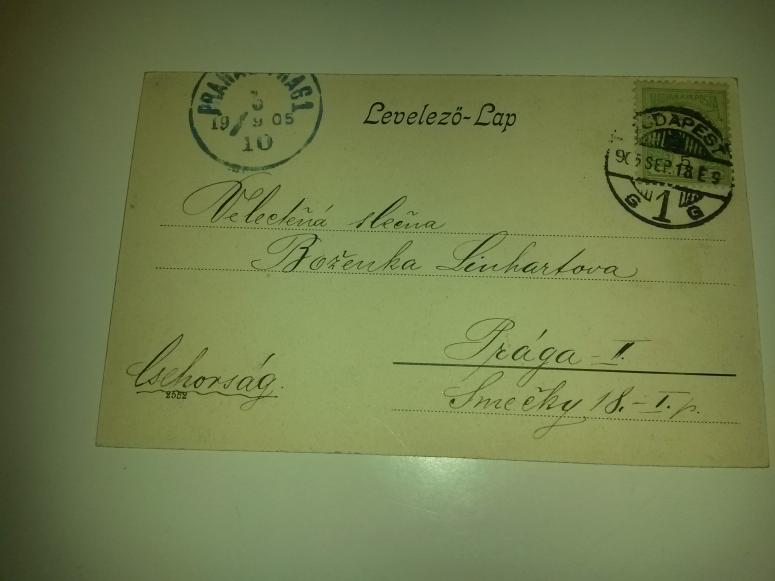 Levelező-Lap
PRAHA PRAG 1
19 9 05
10
MAGYAR KIR. POSTA
BUDAPEST
905 SEP. 18. E 9
1
Velectěná slečna
Boženka Linhartova
Prága - II.
Smečky 18. - I. p.
Csehország.
2552